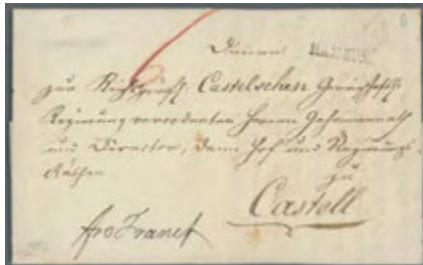 Denen
zur Reichsgräfl. Castelschen
Regierung verordneten Herren Geheimenrath
und Director, dann Hof und Regierungs-
Räthen
zu
Castell
fro Franct